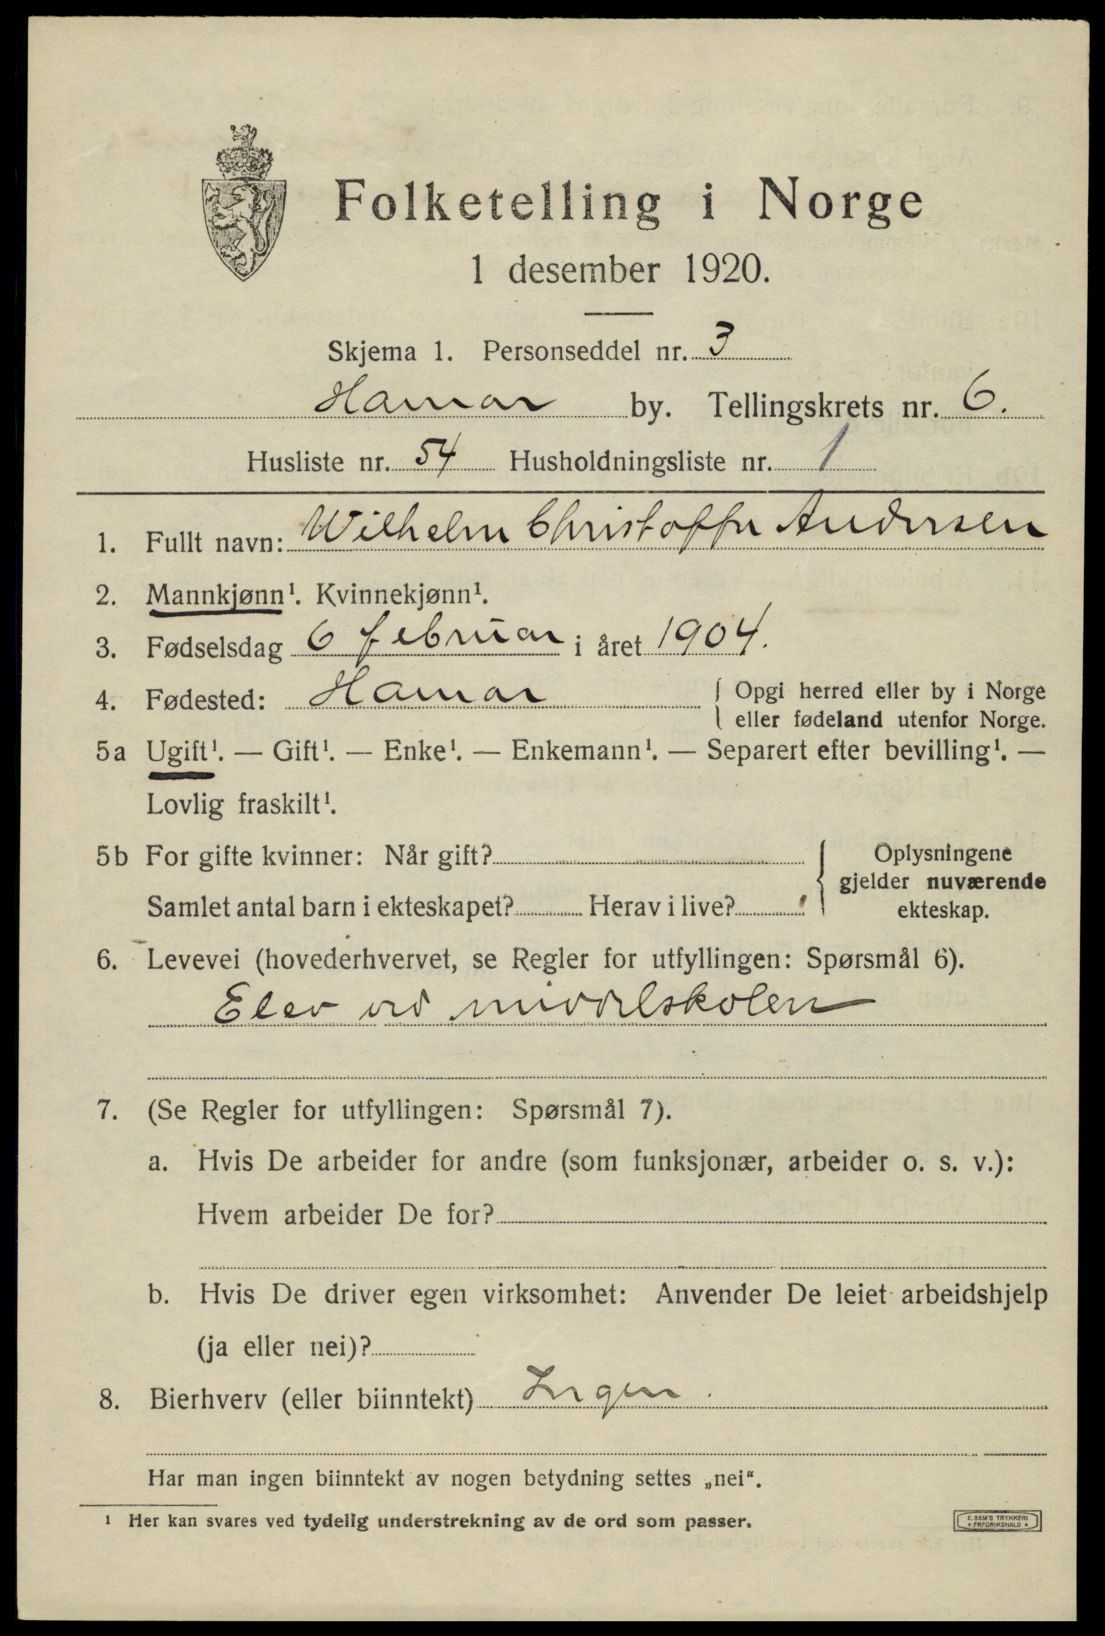 Folketelling i Norge
1 desember 1920.
Skjema 1. Personseddel nr. 3
Hamar by. Tellingskrets nr. 6.
Husliste nr. 54 Husholdningsliste nr. 1
1. Fullt navn: Wilhelm Christoffer Andersen
2. Mannkjønn¹. Kvinnekjønn¹.
3. Fødselsdag 6 februar i året 1904.
4. Fødested: Hamar { Opgi herred eller by i Norge
eller fødeland utenfor Norge.
5a Ugift¹. — Gift¹. — Enke¹. — Enkemann¹. — Separert efter bevilling¹. —
Lovlig fraskilt¹.
5b For gifte kvinner: Når gift? { Oplysningene
gjelder nuværende
Samlet antal barn i ekteskapet? Herav i live? ekteskap.
6. Levevei (hovederhvervet, se Regler for utfyllingen: Spørsmål 6).
Elev ved middelskolen
7. (Se Regler for utfyllingen: Spørsmål 7).
a. Hvis De arbeider for andre (som funksjonær, arbeider o. s. v.):
Hvem arbeider De for?
b. Hvis De driver egen virksomhet: Anvender De leiet arbeidshjelp
(ja eller nei)?
8. Bierhverv (eller biinntekt) Ingen.
Har man ingen biinntekt av nogen betydning settes „nei“.
¹ Her kan svares ved tydelig understrekning av de ord som passer.
E. SEM'S TRYKKERI
* FREDRIKSHALD *